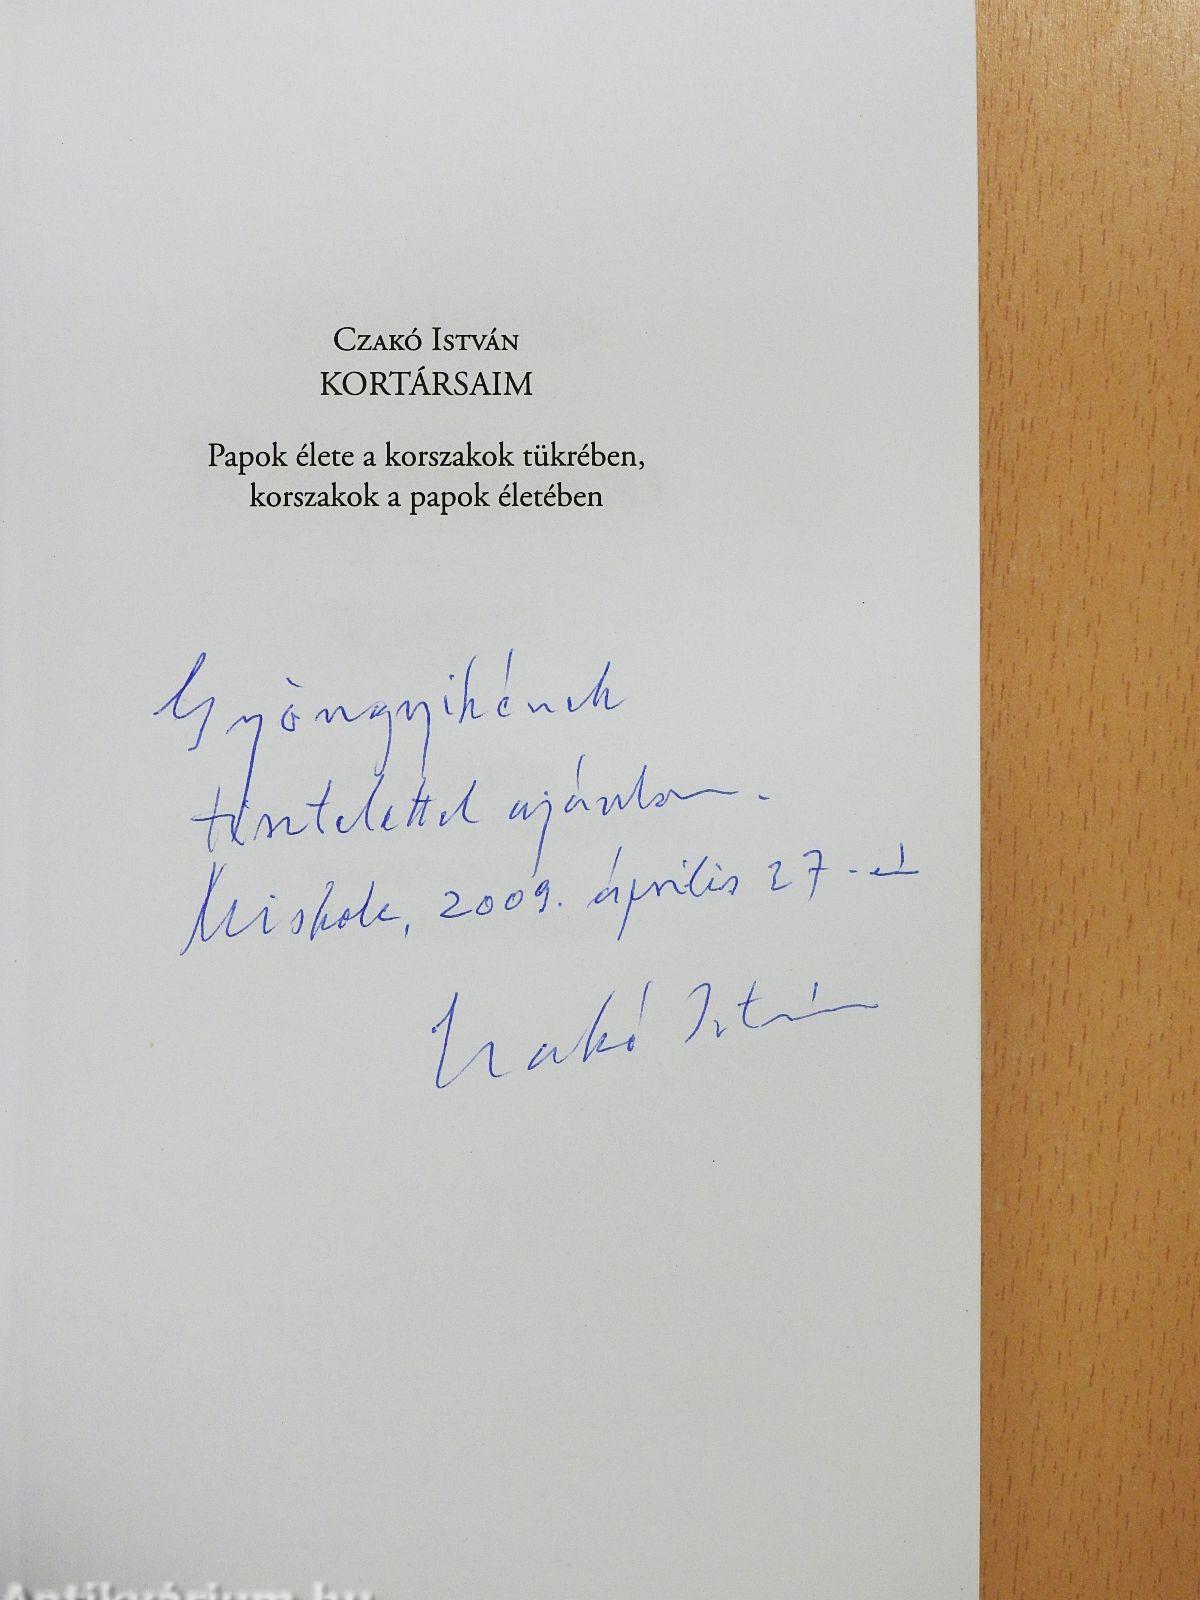 Czakó István
KORTÁRSAIM
Papok élete a korszakok tükrében,
korszakok a papok életében
Gyöngyikének
tisztelettel ajánlom.
Miskolc, 2009. április 27-én
Czakó István
Antikvárium.hu